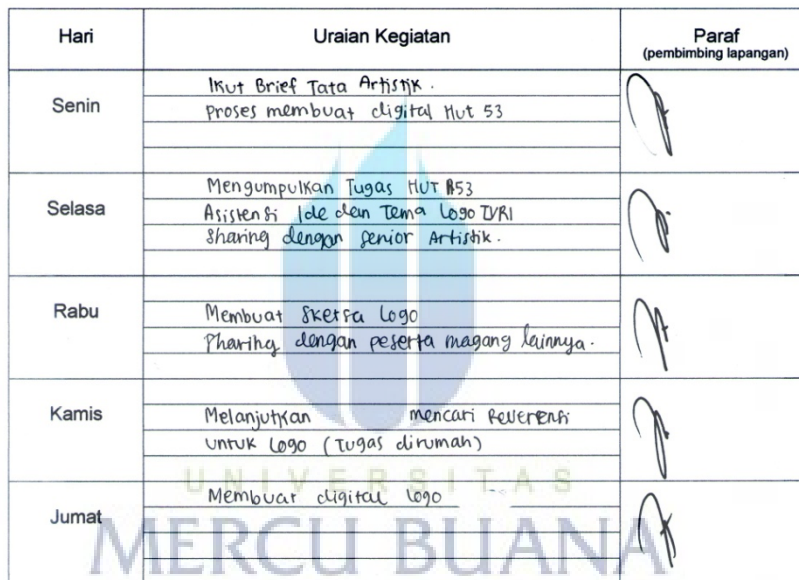 Hari Uraian Kegiatan Paraf
(pembimbing lapangan)
Senin
Ikut Brief Tata Artistik.
Proses membuat digital Hut 53
Selasa
Mengumpulkan Tugas HUT 53
Asistensi Ide dan Tema Logo TVRI
Sharing dengan Senior Artistik.
Rabu
Membuat Sketsa Logo
Sharing dengan peserta magang lainnya.
Kamis
Melanjutkan mencari Reverensi
untuk Logo (Tugas dirumah)
Jumat
Membuat digital logo
UNIVERSITAS
MERCU BUANA